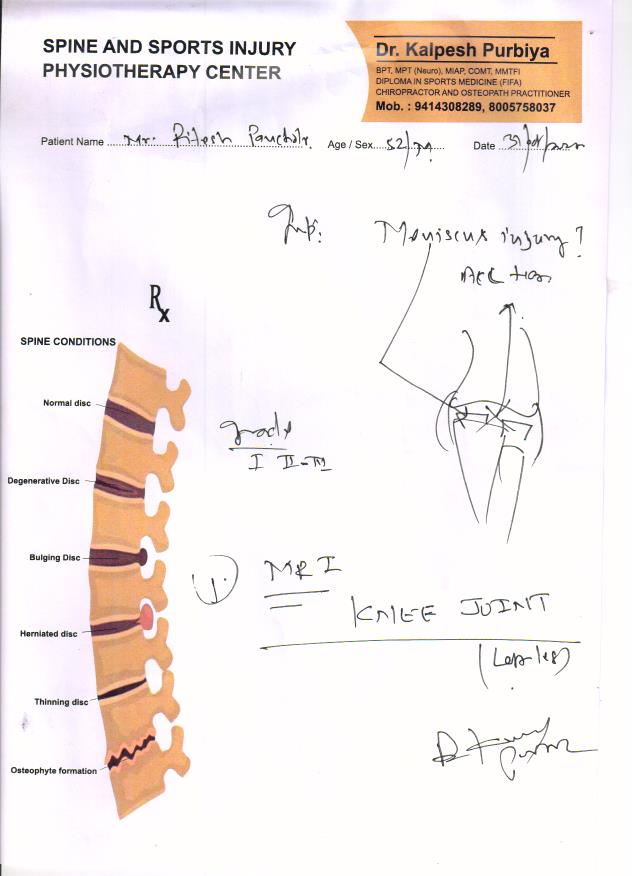 SPINE AND SPORTS INJURY
PHYSIOTHERAPY CENTER
Dr. Kalpesh Purbiya
BPT, MPT (Neuro), MIAP, COMT, MMTFI
DIPLOMA IN SPORTS MEDICINE (FIFA)
CHIROPRACTOR AND OSTEOPATH PRACTITIONER
Mob. : 9414308289, 8005758037
Patient Name Mr. Ritesh Age / Sex 52/M Date
Imp: Meniscus injury?
ACL
Rx
SPINE CONDITIONS
Normal disc
Grade
I II-III
Degenerative Disc
Bulging Disc
1. MRI
KNEE JOINT
Herniated disc
Thinning disc
Osteophyte formation